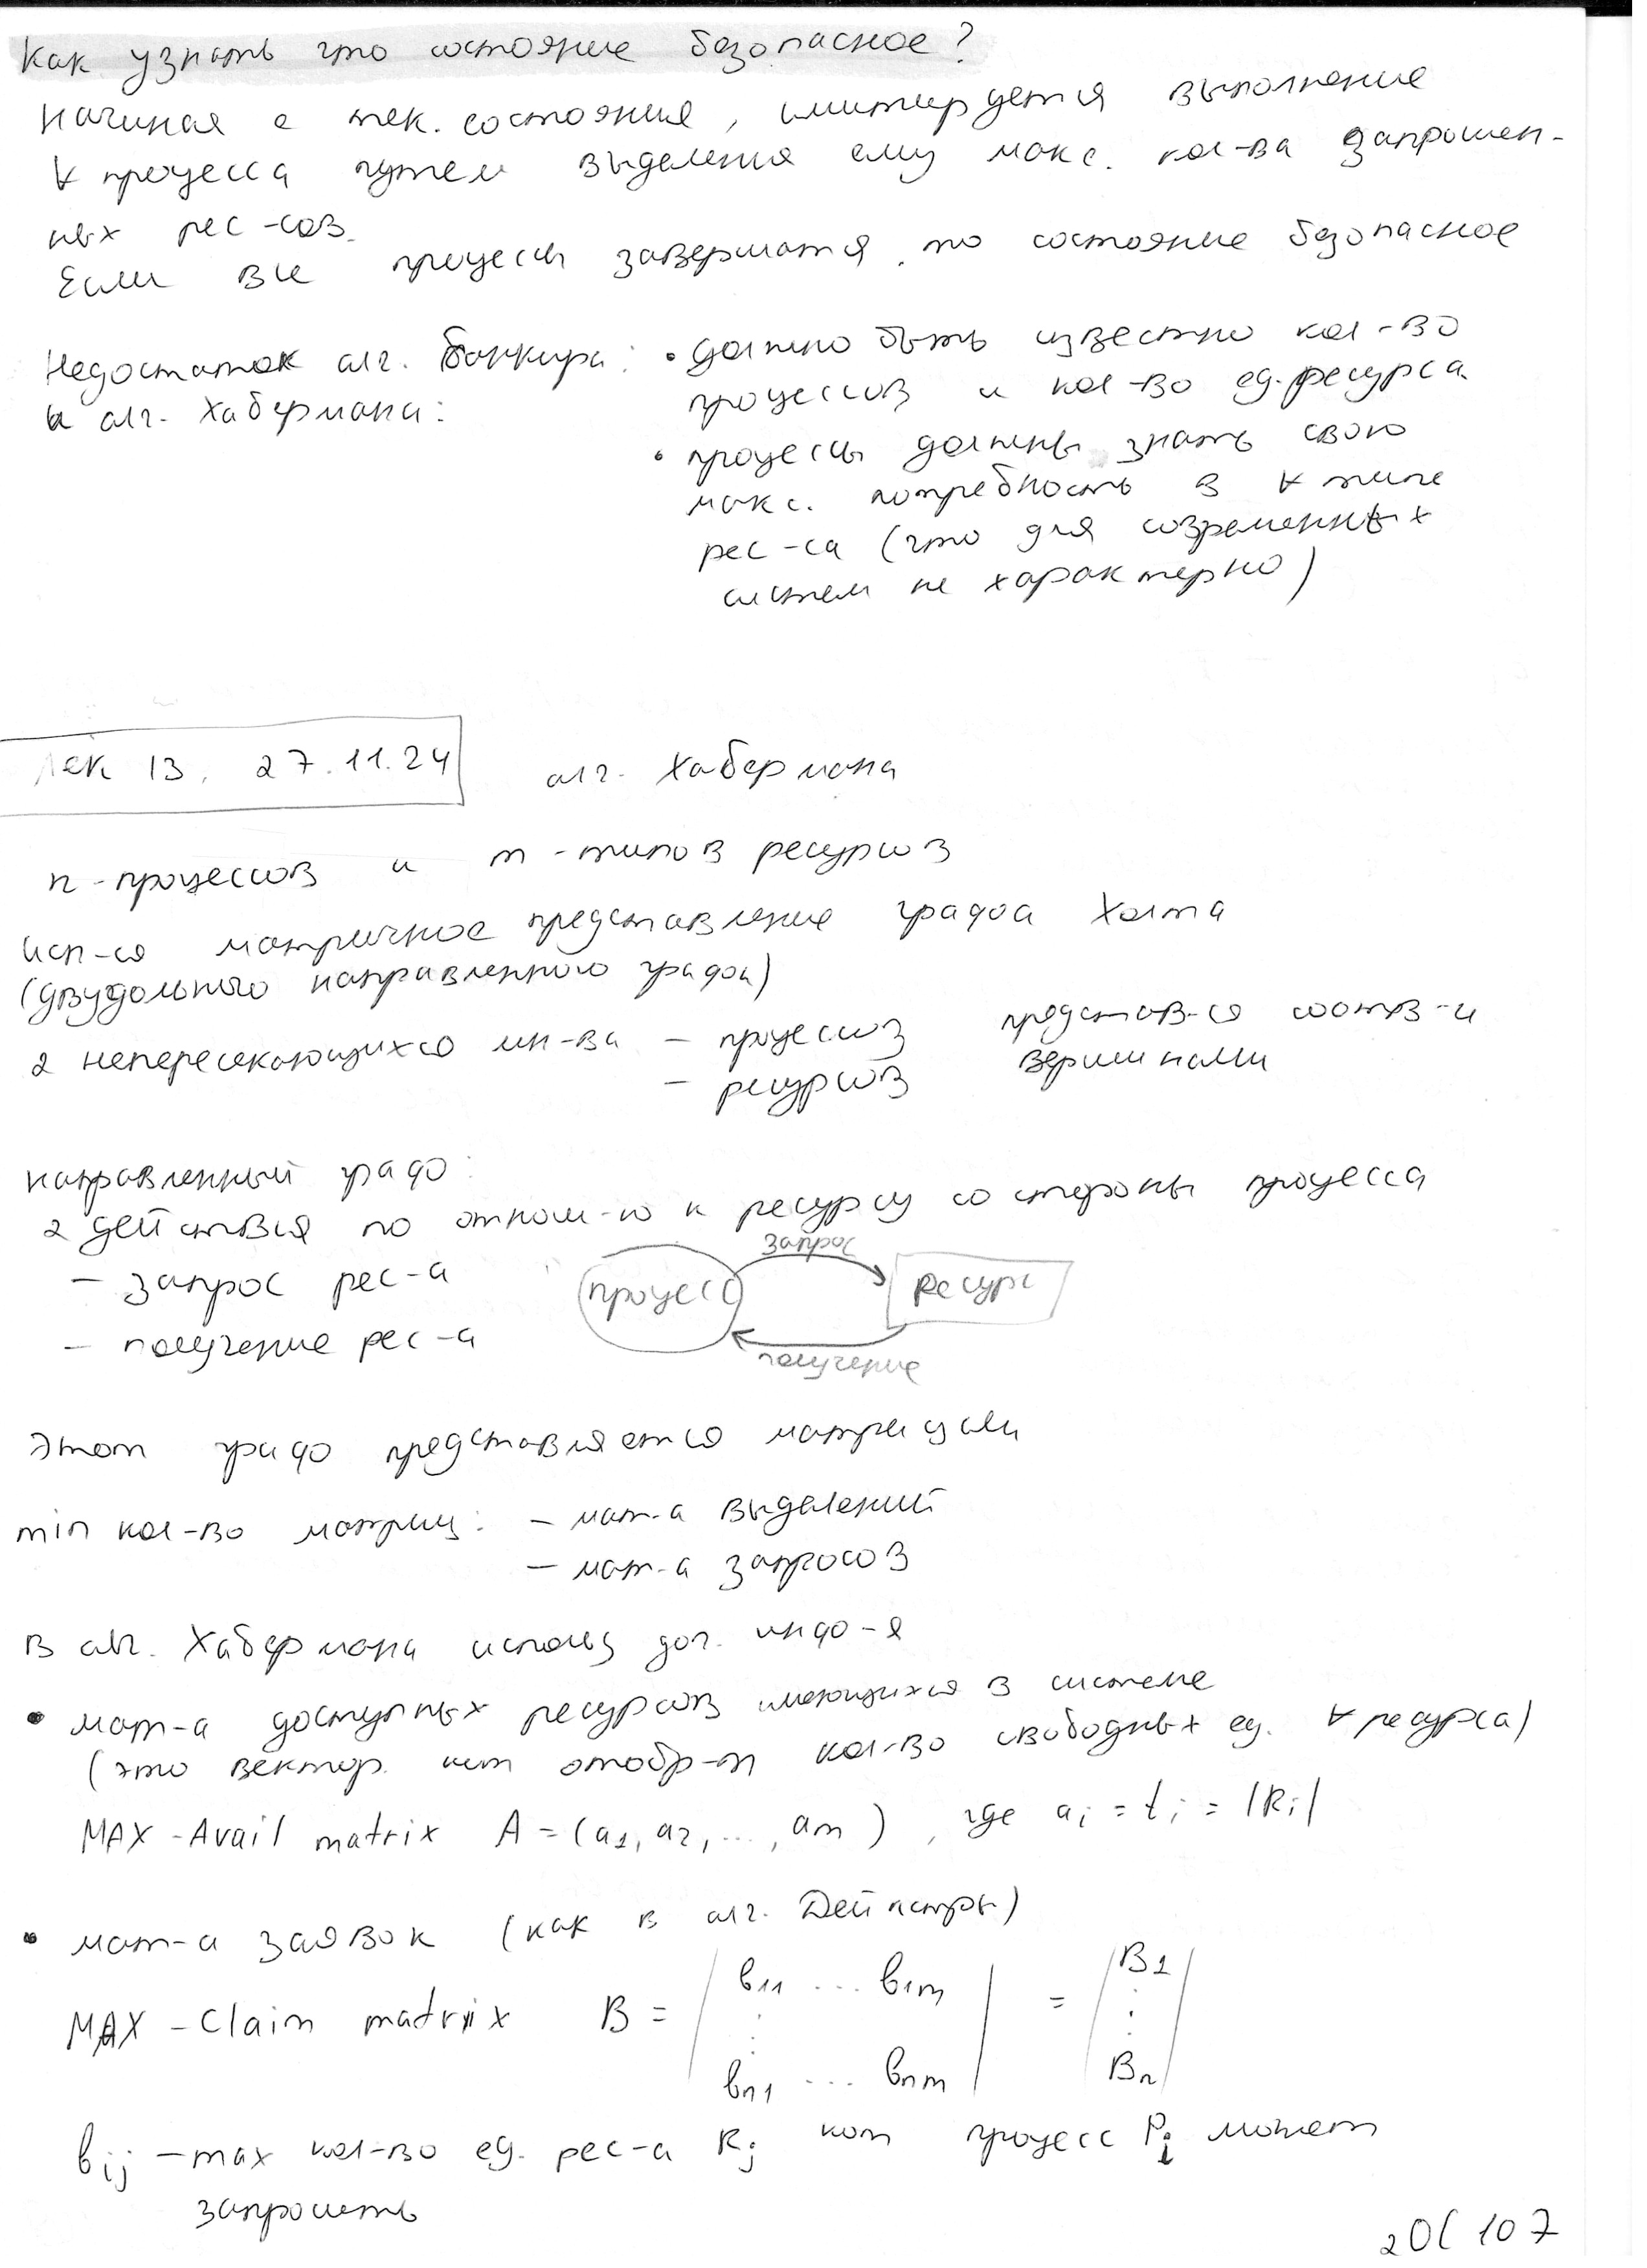 Как узнать что состояние безопасное?
Начиная с тек. состояния, имитируется выполнение
∀ процесса путем выделения ему макс. кол-ва запрошен-
ных рес-сов.
Если все процессы завершатся, то состояние безопасное
Недостаток алг. банкира:
и алг. Хабермана:
• должно быть известно кол-во
процессов и кол-во ед. ресурса
• процессы должны знать свою
макс. потребность в ∀ типе
рес-са (что для современных
систем не характерно)
Лек 13. 27.11.24
алг. Хабермана
n - процессов и m - типов ресурсов
исп-ся матричное представление графа Холта
(двудольного направленного графа)
2 непересекающихся мн-ва – процессов
– ресурсов
представ-ся соотв-и
вершинами
направленный граф:
2 действия по отнош-ю к ресурсу со стороны процесса
– запрос рес-а
– получение рес-а
запрос
процесс
Ресурс
получение
Этот граф представляется матрицами
min кол-во матриц: – мат-а выделений
– мат-а запросов
В алг. Хабермана использ доп. инф-я
• мат-а доступных ресурсов имеющихся в системе
(это вектор. кот отобр-т кол-во свободных ед. ∀ ресурса)
MAX - Avail matrix A = (a1, a2, ..., am) , где ai = ti = |Ri|
• мат-а заявок (как в алг. Дейкстры)
MAX - Claim matrix B = | b11 ... b1m ⋮ bn1 ... bnm | = | B1 ⋮ Bn |
bij – max кол-во ед. рес-а Rj кот процесс Pi может
запросить
20( 107